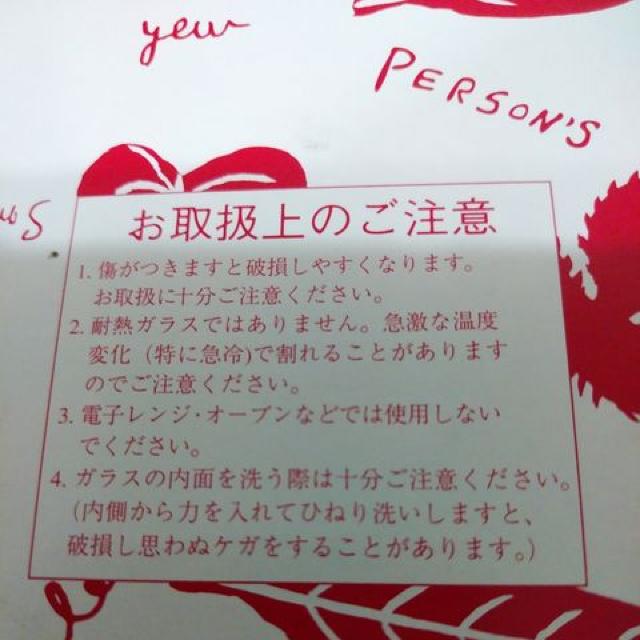 yew
PERSON'S
お取扱上のご注意
1. 傷がつきますと破損しやすくなります。
お取扱に十分ご注意ください。
2. 耐熱ガラスではありません。急激な温度
変化（特に急冷)で割れることがあります
のでご注意ください。
3. 電子レンジ・オーブンなどでは使用しない
でください。
4. ガラスの内面を洗う際は十分ご注意ください。
（内側から力を入れてひねり洗いしますと、
破損し思わぬケガをすることがあります。）